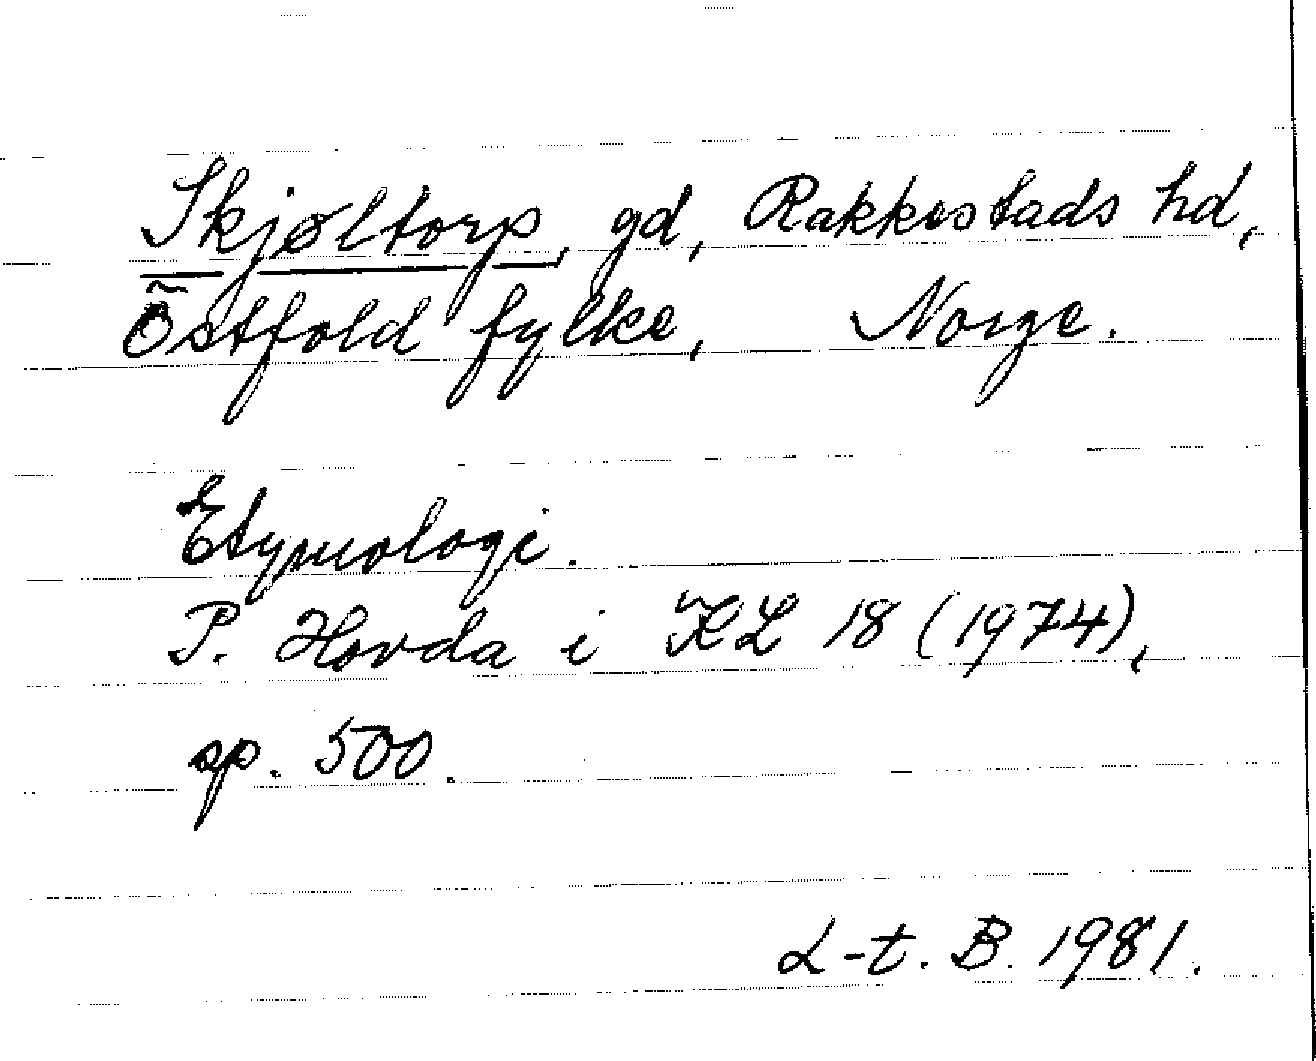 Skjøltorp, gd, Rakkestads hd,
Östfold fylke, Norge.
Etymologi.
P. Hovda i KL 18 (1974),
sp. 500.
L-t. B. 1981.